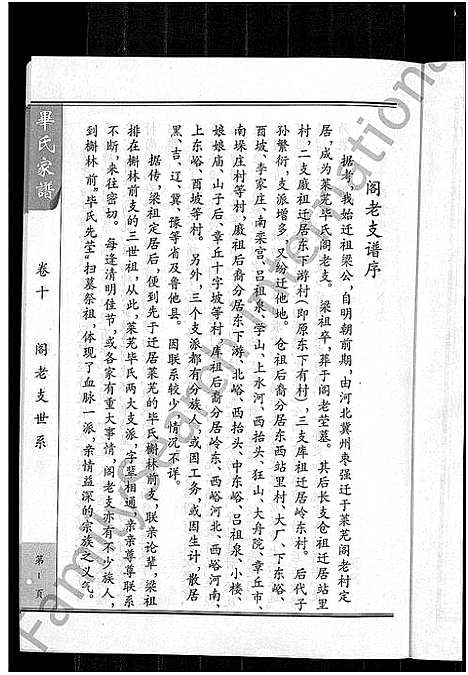 阁老支谱序
据考，我始迁祖梁公，自明朝前期，由河北冀州枣强迁于莱芜阁老村定
居，成为莱芜毕氏阁老支。梁祖卒，葬于阁老茔墓。其后长支仓祖迁居站里
村，二支廒祖迁居东下游村（即原东下有村），三支库祖迁居岭东村。后代子
孙繁衍，支派增多，又纷迁他地。仓祖后裔分居东西站里村、大厂、下东峪、
酉坡、李家庄、南栾宫、吕祖泉、学山、上水河、西抬头、狂山、大舟院、章丘市、
南垛庄村等村，廒祖后裔分居东下游、北峪、西抬头、中东峪、吕祖泉、小楼、
娘娘庙、山子后、章丘十字坡等村，库祖后裔分居岭东、西峪河北、西峪河南、
上东峪、酉坡等村。另外，三个支派都有分族人，或因工务，或因生计，散居
黑、吉、辽、冀、豫等省及鲁他县。因联系较少，情况不详。
据传，梁祖定居后，便到先于迁居莱芜的毕氏槲林前支，联亲论辈，梁祖
排在槲林前支的三世祖，从此，莱芜毕氏两大支派，字辈相通，亲亲尊尊联系
不断，来往密切。每逢清明佳节，或各家有重大事情，阁老支亦有不少族人，
到槲林前“毕氏先茔”扫墓祭祖，体现了血脉一派，亲情益深的宗族之义气。
畢氏家譜
卷十
阁老支世系
第1頁
FamilySearch International